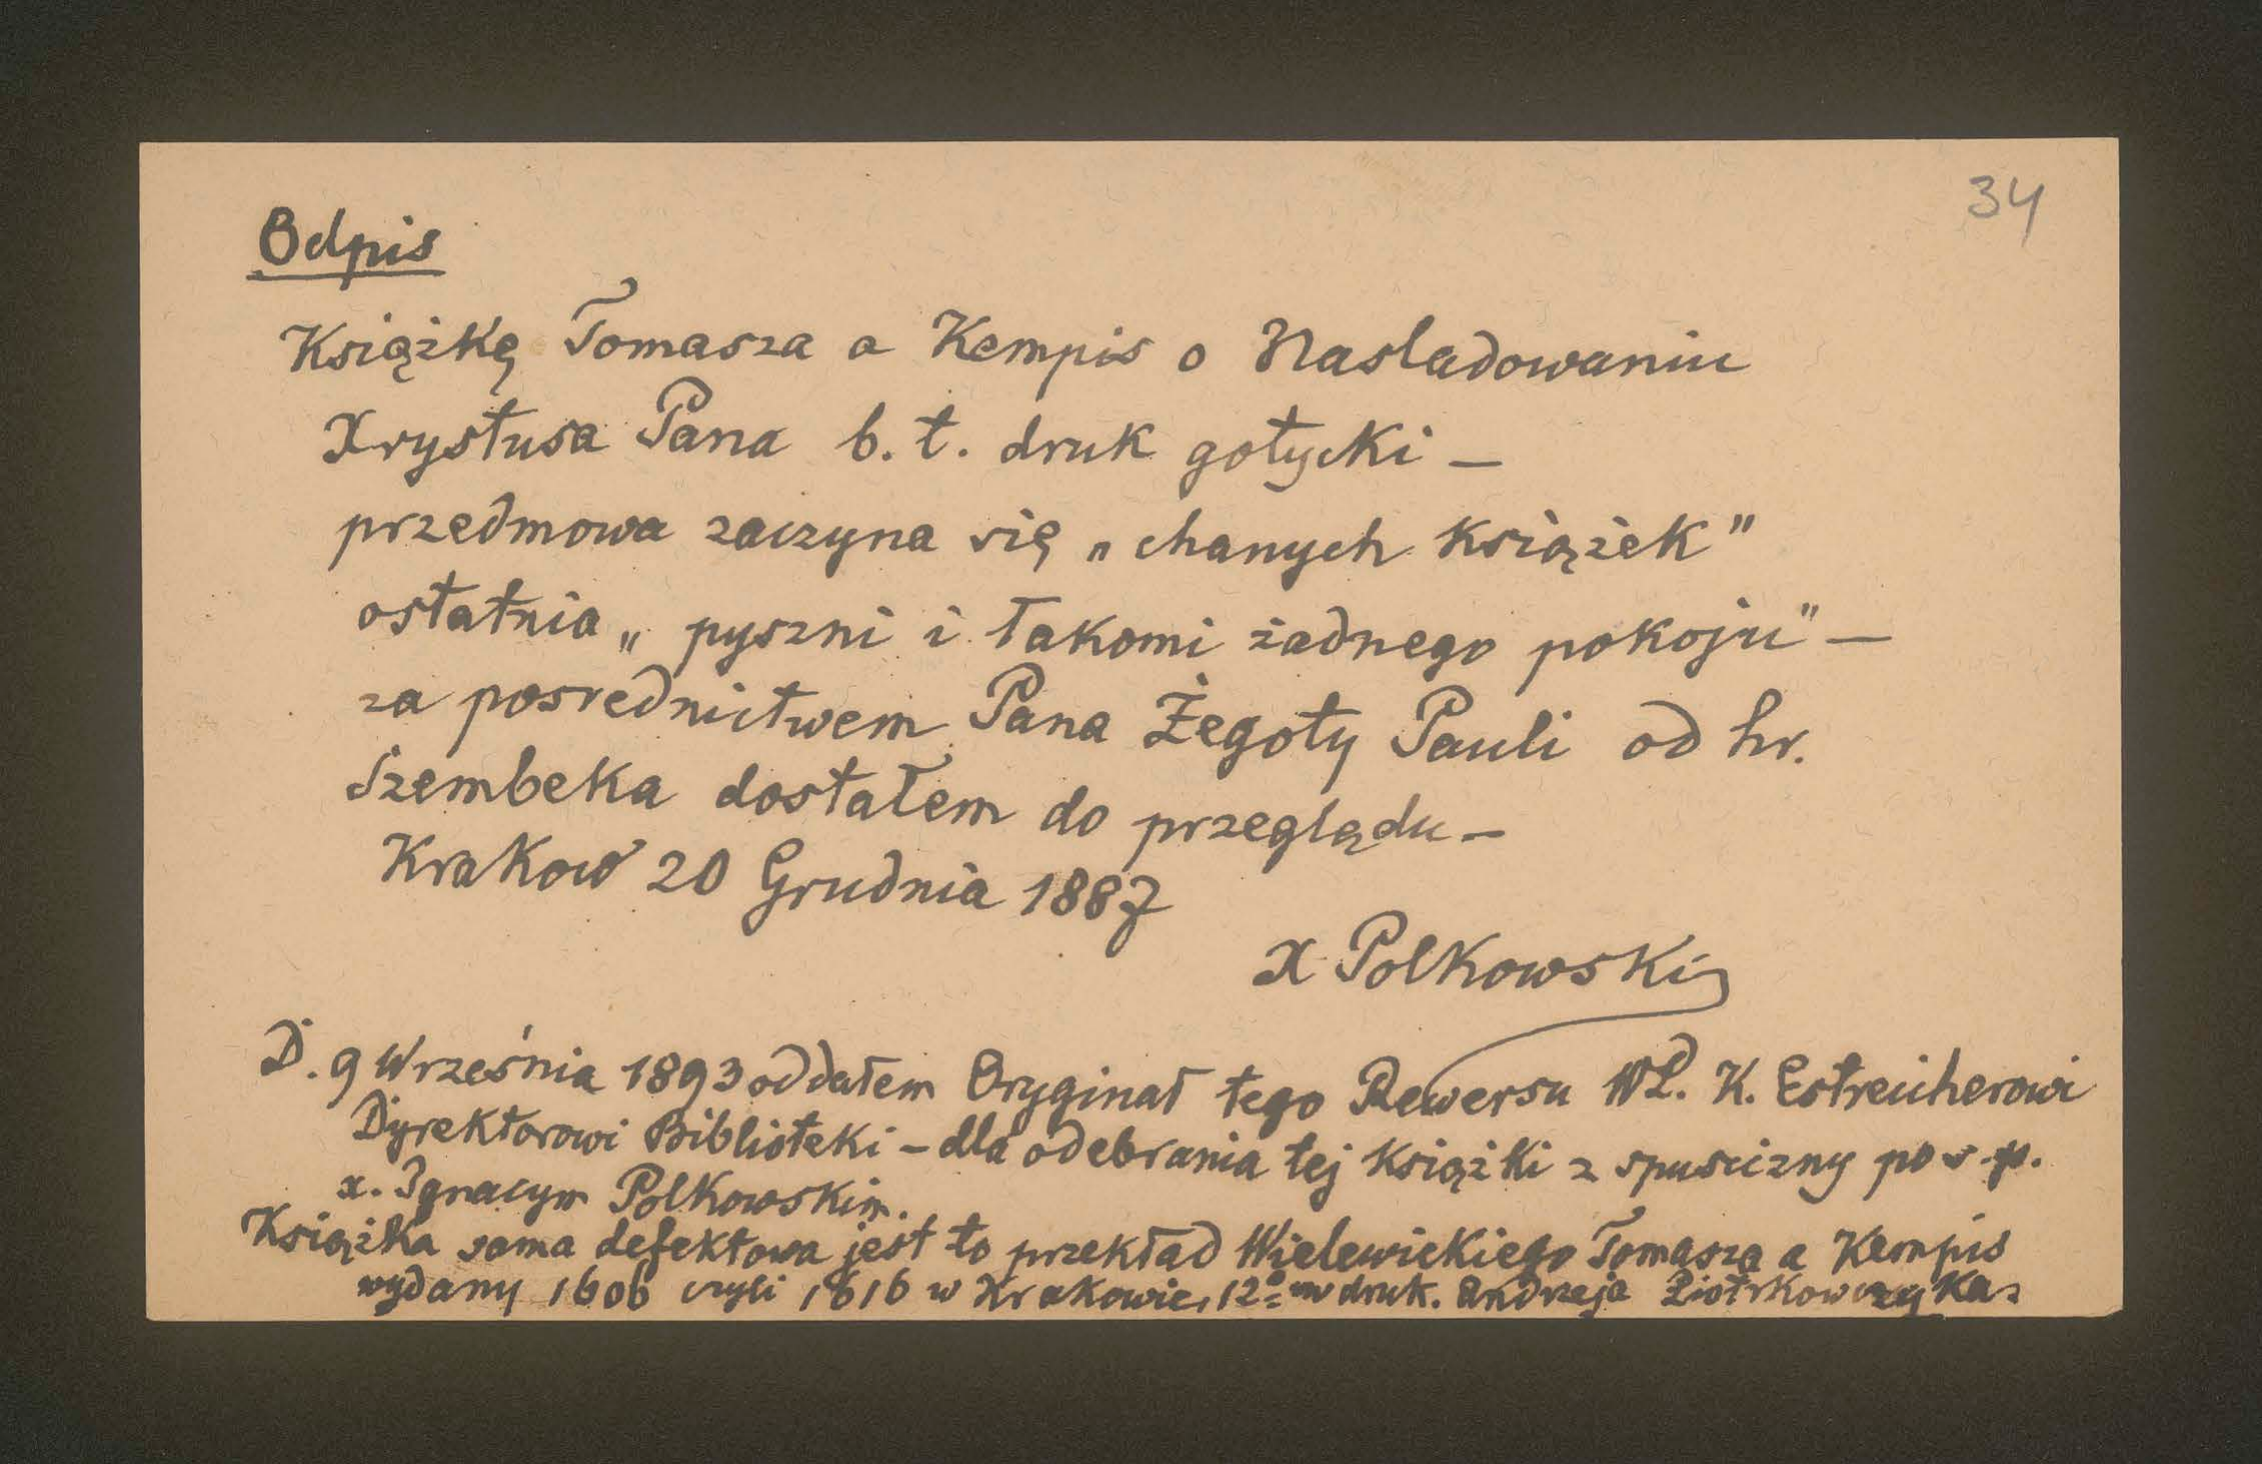 34
Odpis
Książkę Tomasza a Kempis o Nasladowaniu
Xrystusa Pana b. t. druk gotycki –
przedmowa zaczyna się „chanych książek"
ostatnia „pyszni i łakomi żadnego pokoju" –
za posrednictwem Pana Żegoty Pauli od hr.
Szembeka dostałem do przeglądu –
Krakow 20 Grudnia 1887
X Polkowski
D. 9 Września 1893 oddałem Oryginał tego Rewersu WP. K. Estreicherowi
Dyrektorowi Biblioteki – dla odebrania tej książki z spuscizny po s. p.
x. Ignacym Polkowskim.
Książka sama defektowa jest to przekład Wielewickiego Tomasza a Kempis
wydany 1606 czyli 1616 w Krakowie, 12º w druk. Andrzeja Piotrkowczyka